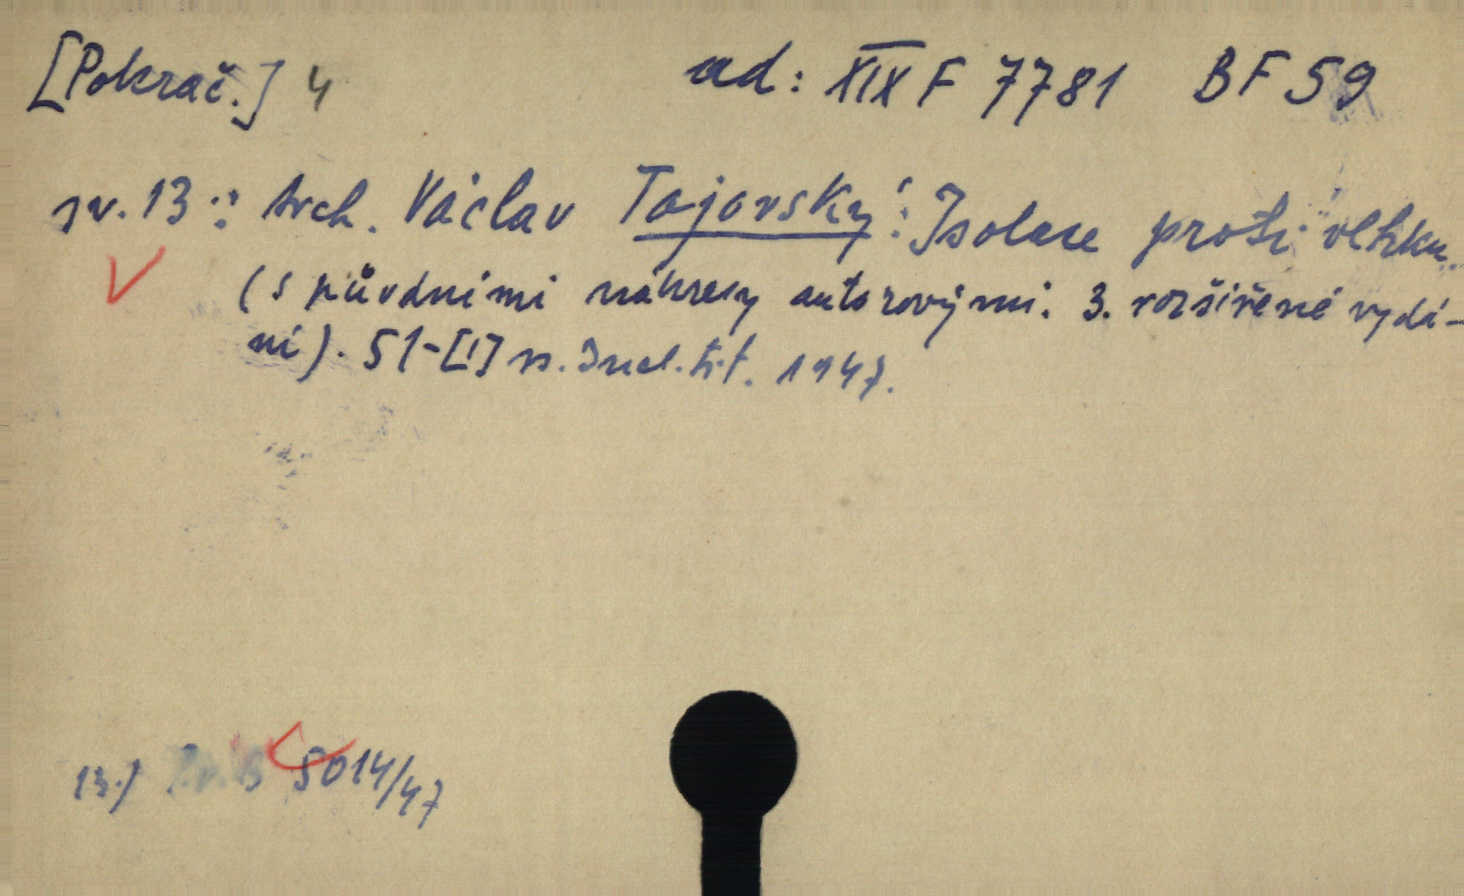 [Pokrač.] 4 ad: XIX F 7781 BF 59
sv. 13 : Arch. Václav Tajovský: Isolace proti vlhku.
(s původními nákresy autorovými. 3. rozšířené vydá-
ní). 51-[I] s. Incl. tit. 1947.
13.) 5014/47